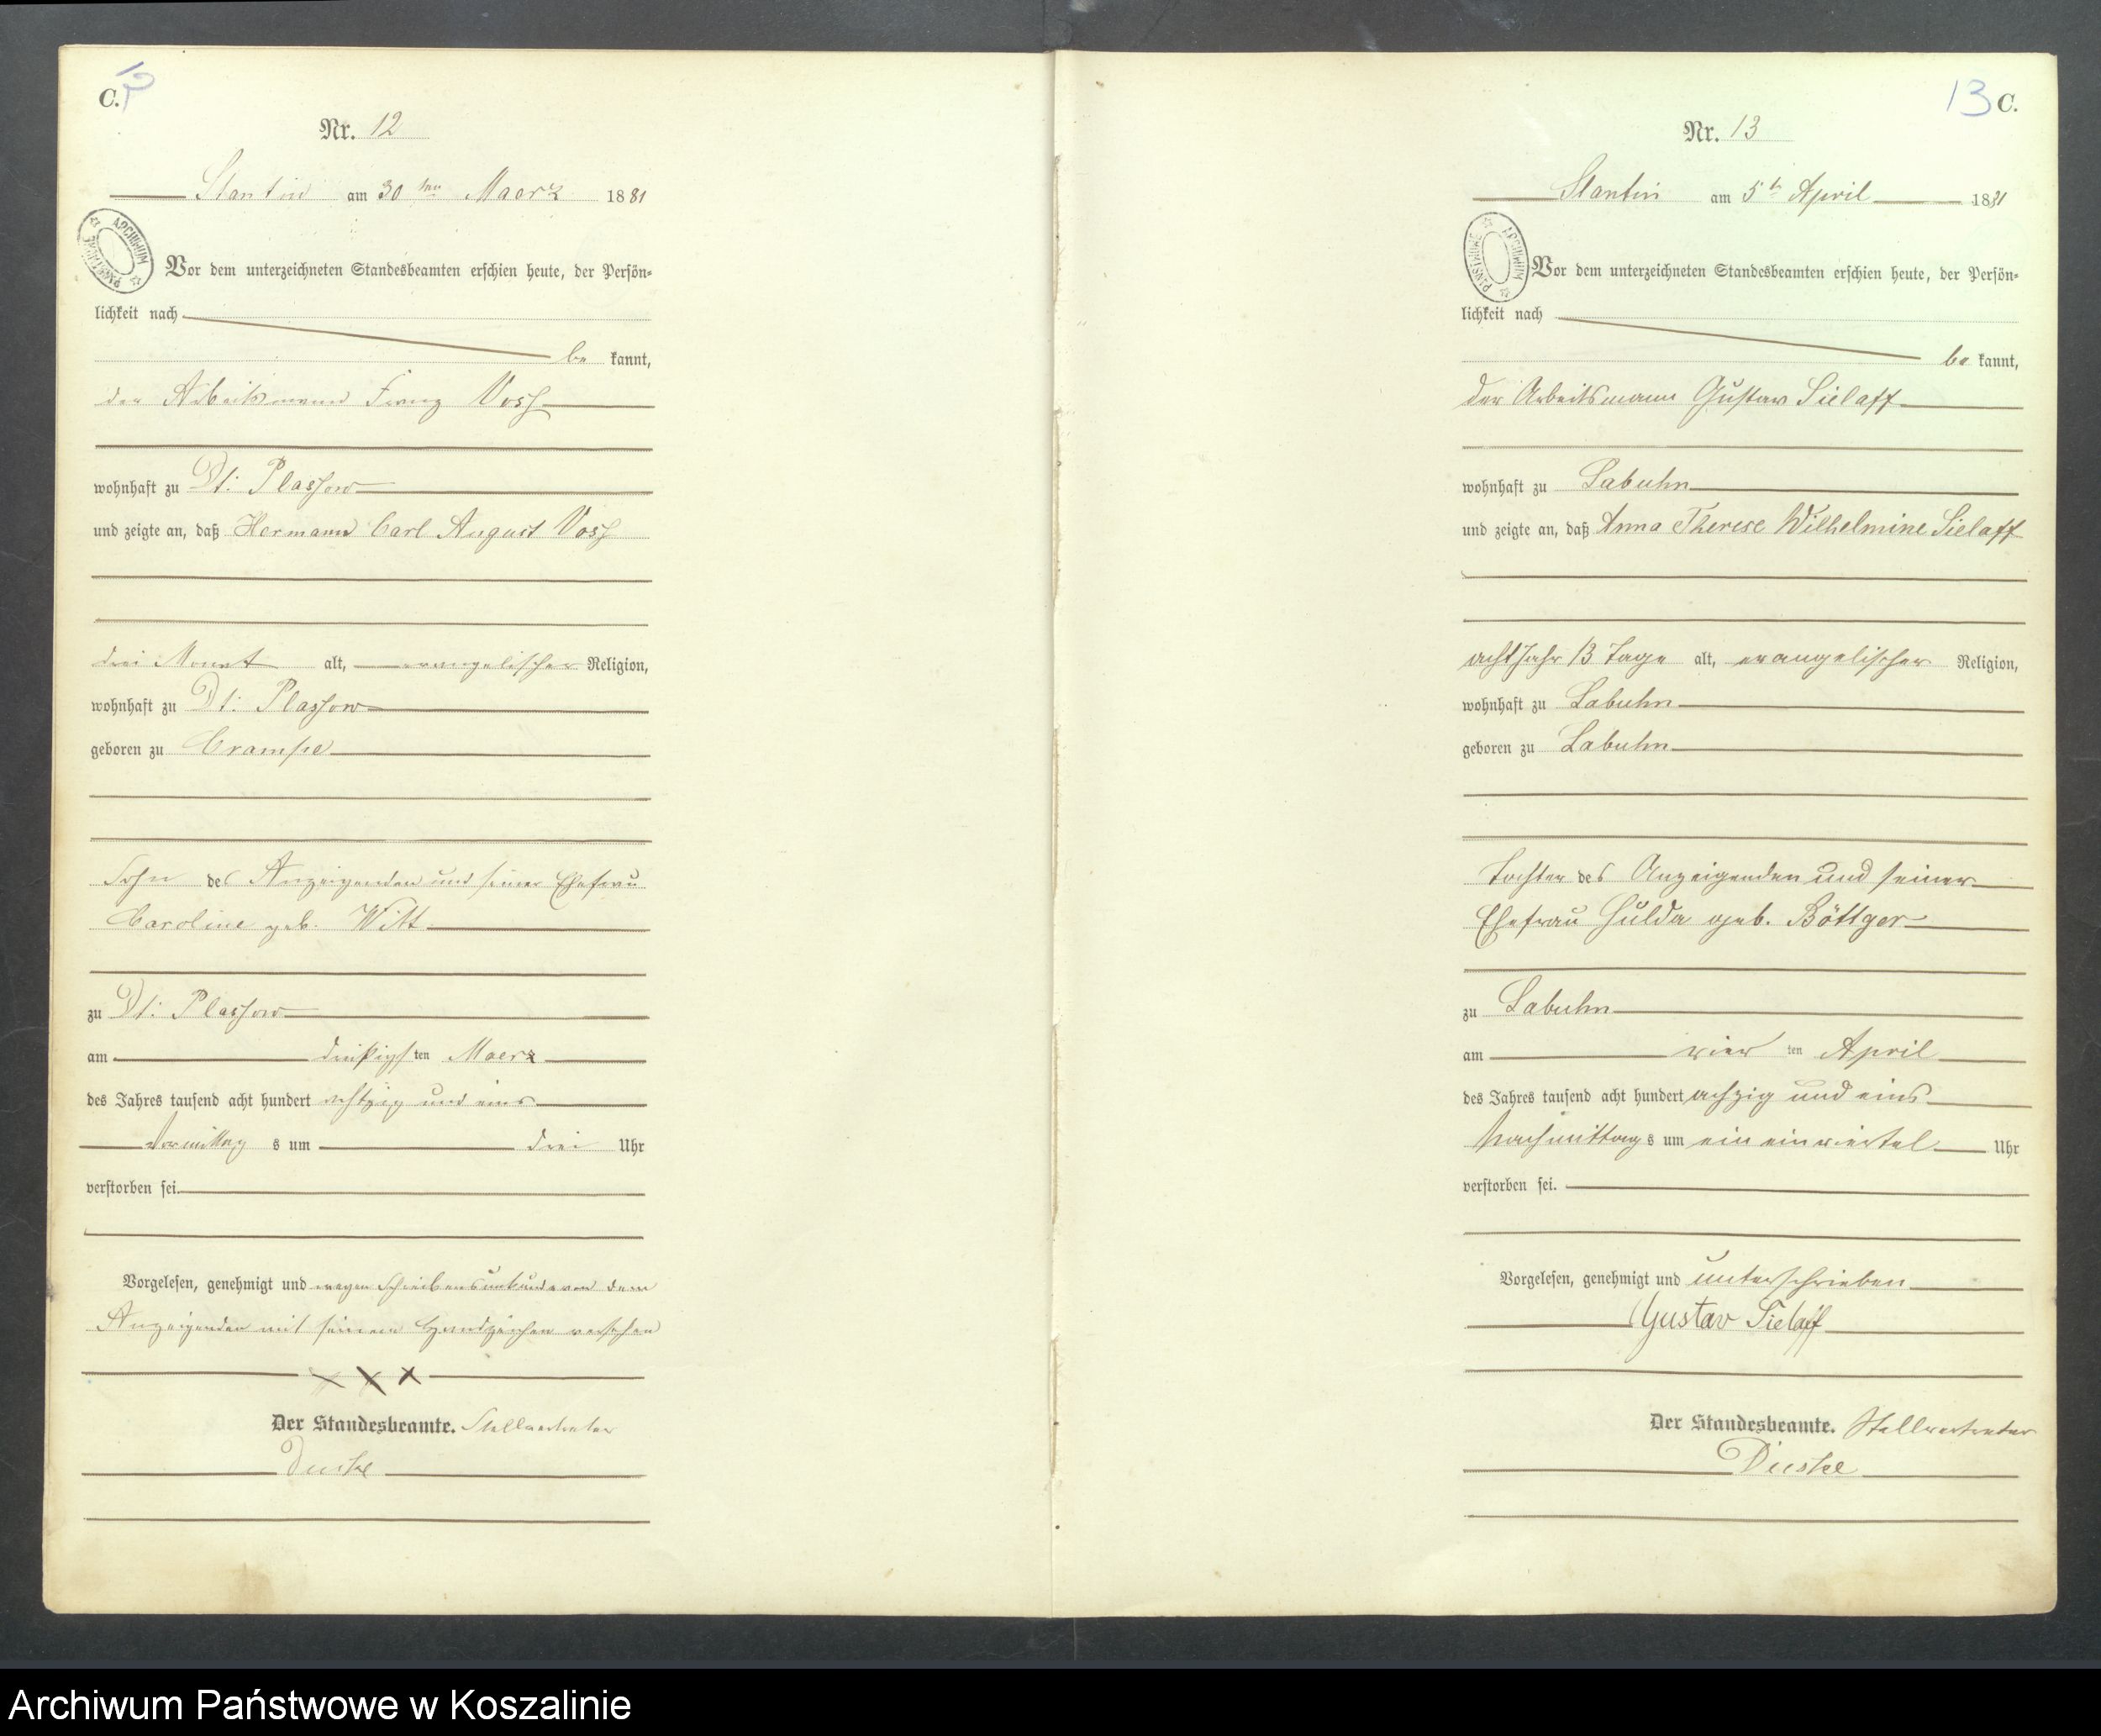 12
C.
Nr. 12
Stantin am 30ten Maerz 1881
ARCHIWUM PAŃSTWOWE
Vor dem unterzeichneten Standesbeamten erschien heute, der Persön-
lichkeit nach
be kannt,
der Arbeitsmann Franz Voss
wohnhaft zu Dt: Plassow
und zeigte an, daß Hermann Carl August Voss
drei Monat alt, evangelischer Religion,
wohnhaft zu Dt: Plassow
geboren zu Crampe
Sohn des Anzeigenden und seiner Ehefrau
Caroline geb. Witt
zu Dt: Plassow
am dreißigsten Maerz
des Jahres tausend acht hundert achtzig und eins
Vormittag s um drei Uhr
verstorben sei.
Vorgelesen, genehmigt und wegen Schreibensunkunde von dem
Anzeigenden mit seinem Handzeichen versehen
x x x
Der Standesbeamte. Stellvertreter
13 C.
Nr. 13
Stantin am 5t April 1881
ARCHIWUM PAŃSTWOWE
Vor dem unterzeichneten Standesbeamten erschien heute, der Persön-
lichkeit nach
be kannt,
der Arbeitsmann Gustav Sielaff
wohnhaft zu Labuhn
und zeigte an, daß Anna Therese Wilhelmine Sielaff
acht Jahr 13 Tage alt, evangelischer Religion,
wohnhaft zu Labuhn
geboren zu Labuhn
Tochter des Anzeigenden und seiner
Ehefrau Hulda geb. Böttger
zu Labuhn
am vier ten April
des Jahres tausend acht hundert achzig und eins
Nachmittag s um ein einviertel Uhr
verstorben sei.
Vorgelesen, genehmigt und unterschrieben
Gustav Sielaff
Der Standesbeamte. Stellvertreter
Archiwum Państwowe w Koszalinie